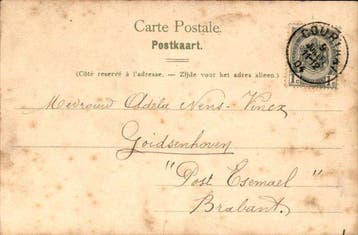 Carte Postale.
Postkaart.
(Côté réservé à l'adresse. — Zijde voor het adres alleen.)
Medevouw Adèla Nens-Vinez
Goidsenhoven
"Post Esemael"
Brabant.
COURTRAI